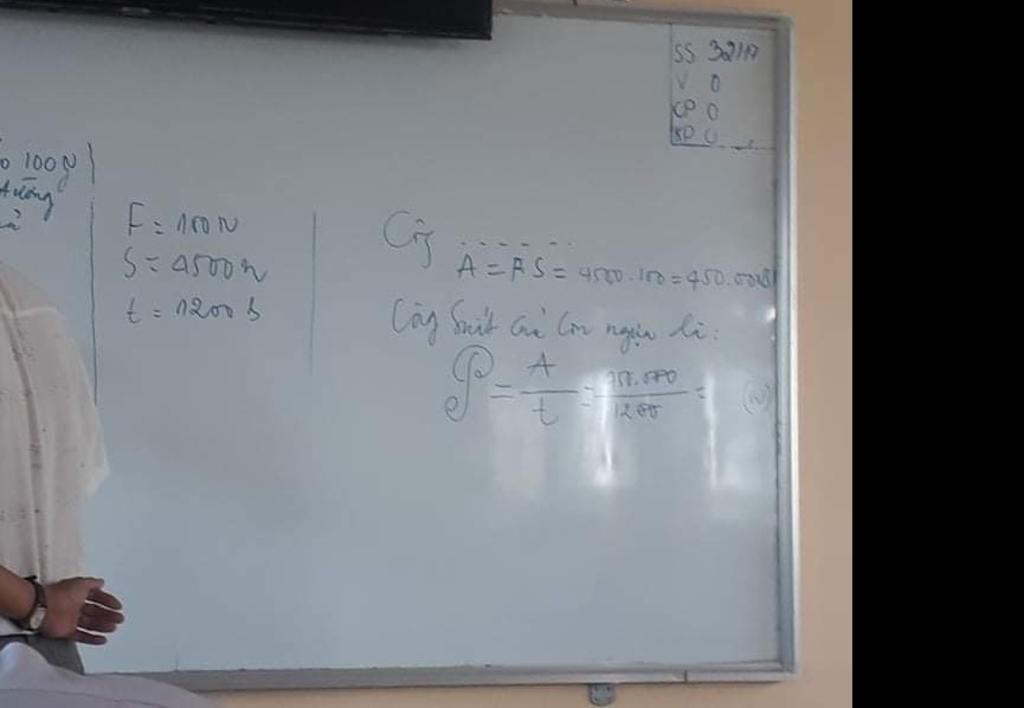 SS 32/17
V 0
CP 0
KP 0
100N
đường
F = 100N
S = 4500m
t = 1200s
Công ......
A = F.S = 4500.100 = 450.000
Công suất của con ngựa là:
𝒫 = A/t = 450.000/1200 = (W)